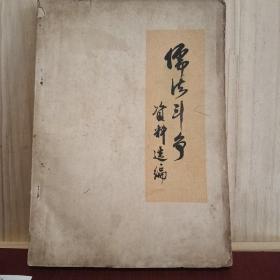 儒法斗争
资料选编